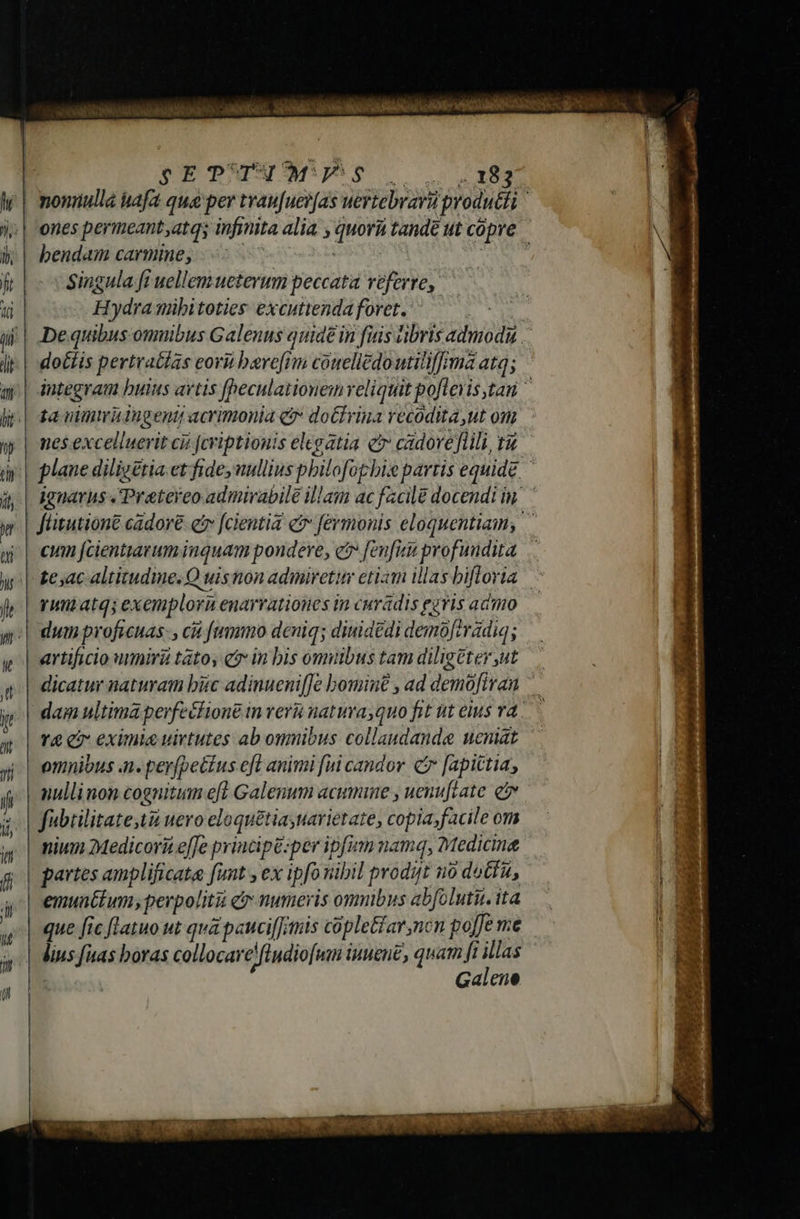 SEPTIMVS 183
nonnulla uasa quæ per transuersas uertebrarũ producti
ones permeant, atq; infinita alia, quorũ tandẽ ut cõpre
hendam carmine,
Singula si uellem ueterum peccata referre,
Hydra mihi toties excutienda foret.
De quibus omnibus Galenus quidẽ in suis libris admodũ
doctis pertractãs eorũ hæresim cõuellẽdo utilissimã atq;
integram huius artis speculationem reliquit posteris, tan
ta nimirũ ingenij acrimonia &amp; doctrina recõdita, ut om
nes excelluerit cũ scriptionis elegãtia &amp; cãdore stili, tũ
plane diligẽtia et fide, nullius philosophiæ partis equidẽ
ignarus. Prætereo admirabilẽ illam ac facilẽ docendi in
stitutionẽ cãdorẽ &amp; scientiã &amp; sermonis eloquentiam,
cum scientiarum inquam pondere, &amp; sensuũ profundita
te, ac altitudine. Quis non admiretur etiam illas historia
rum atq; exemplorũ enarrationes in curãdis ægris admo
dum proficuas, cũ summo deniq; diuidẽdi demõstrãdiq;
artificio nimirũ tãto, &amp; in his omnibus tam diligẽter, ut
dicatur naturam hũc adinuenisse hominẽ, ad demõstran
dam ultimã perfectionẽ in rerũ natura, quo fit ut eius ra
ræ &amp; eximiæ uirtutes ab omnibus collaudandæ ueniãt
omnibus .n. perspectus est animi sui candor &amp; sapiẽtia,
nulli non cognitum est Galenum acumine, uenustate &amp;
subtilitate, tũ uero eloquẽtia, uarietate, copia, facile om
nium Medicorũ esse principẽ: per ipsum namq, Medicinæ
partes amplificatæ sunt, ex ipso nihil prodijt nõ doctũ,
emunctum, perpolitũ &amp; numeris omnibus absolutũ. ita
que sic statuo ut quã paucissimis cõplectar, non posse me
lius suas horas collocare studiosum iuuenẽ, quam si illas
Galene